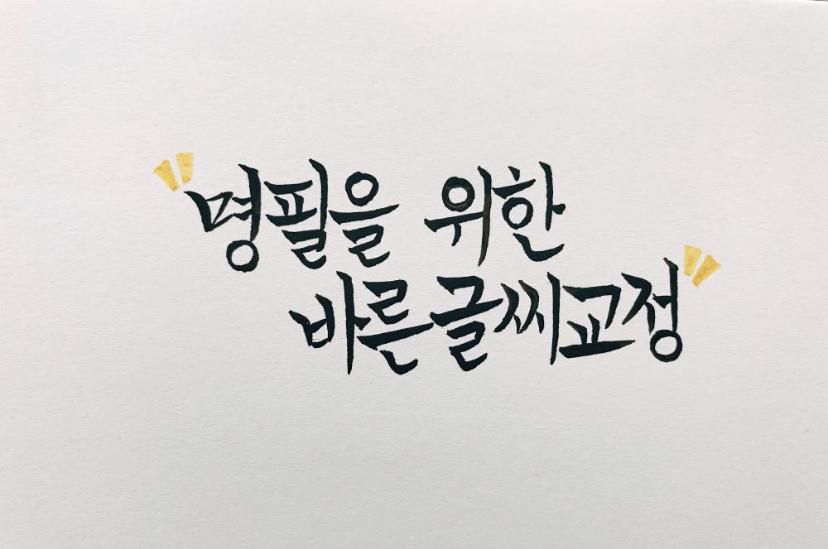 명필을 위한
바른글씨교정